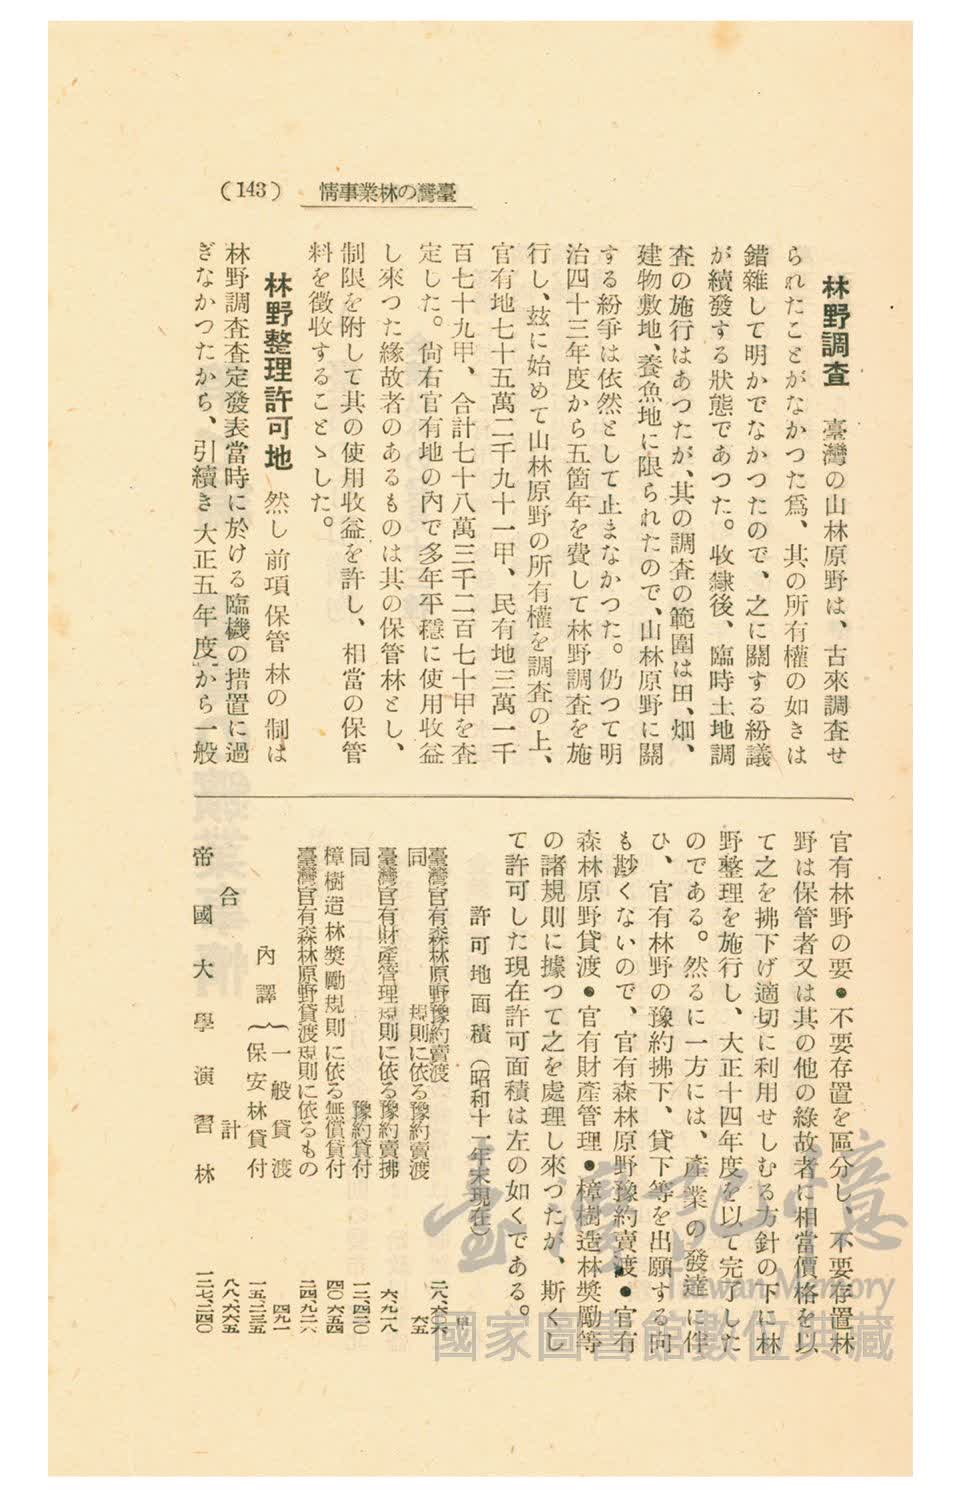 (143)
情事業林の灣臺
林野調査　臺灣の山林原野は、古來調査せ
られたことがなかつた爲、其の所有權の如きは
錯雜して明かでなかつたので、之に關する紛議
が續發する狀態であつた。收隷後、臨時土地調
査の施行はあつたが、其の調査の範圍は田、畑、
建物敷地、養魚地に限られたので、山林原野に關
する紛爭は依然として止まなかつた。仍つて明
治四十三年度から五箇年を費して林野調査を施
行し、玆に始めて山林原野の所有權を調査の上、
官有地七十五萬二千九十一甲、民有地三萬一千
百七十九甲、合計七十八萬三千二百七十甲を査
定した。尙右官有地の內で多年平穩に使用收益
し來つた緣故者のあるものは其の保管林とし、
制限を附して其の使用收益を許し、相當の保管
料を徵收することゝした。
林野整理許可地　然し前項保管林の制は
林野調査査定發表當時に於ける臨機の措置に過
ぎなかつたから、引續き大正五年度から一般
官有林野の要●不要存置を區分し、不要存置林
野は保管者又は其の他の緣故者に相當價格を以
て之を拂下げ適切に利用せしむる方針の下に林
野整理を施行し、大正十四年度を以て完了した
のである。然るに一方には、產業の發達に伴
ひ、官有林野の豫約拂下、貸下等を出願する向
も尠くないので、官有森林原野豫約賣渡●官有
森林原野貸渡●官有財產管理●樟樹造林獎勵等
の諸規則に據つて之を處理し來つたが、斯くし
て許可した現在許可面積は左の如くである。
許可地面積（昭和十一年末現在）
甲
臺灣官有森林原野豫約賣渡 二八、六〇六
同 規則に依る豫約賣渡 六五
臺灣官有財產管理規則に依る豫約賣拂 六、九一八
同 豫約貸付 一二、四二〇
樟樹造林獎勵規則に依る無償貸付 四〇、六五四
臺灣官有森林原野貸渡規則に依るもの 二四、九二六
內譯｛一般貸渡 四九一
保安林貸付 一五、二三五
合計 八八、六六五
帝國大學演習林 一三七、二四〇
臺灣記憶
Taiwan Memory
國家圖書館數位典藏